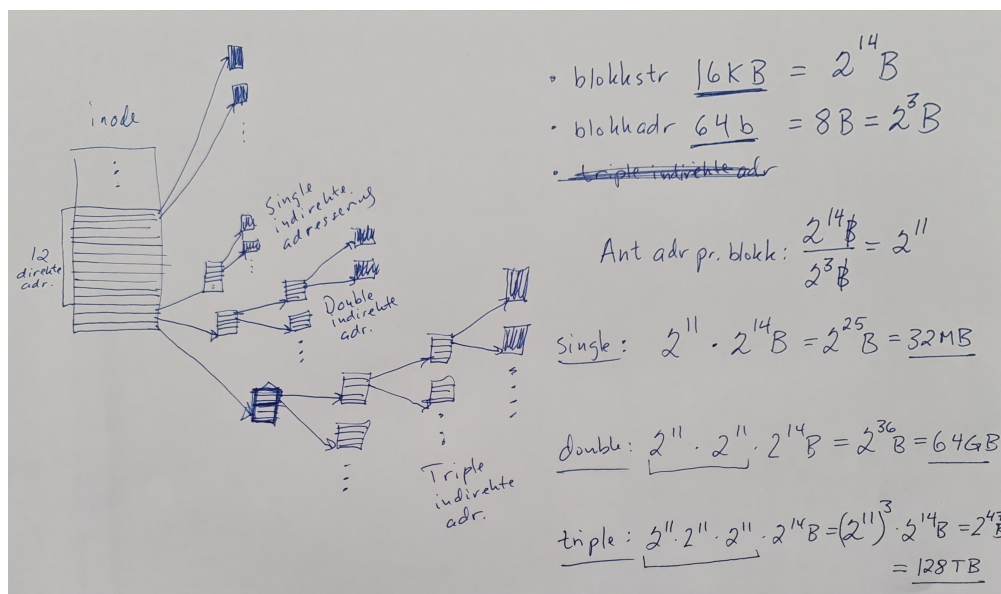 inode
12
direkte
adr.
Single
indirekte
adressering
Double
indirekte
adr.
Triple
indirekte
adr.
• blokkstr 16KB = 2^14 B
• blokkadr 64b = 8B = 2^3 B
• triple indirekte adr
Ant adr pr. blokk: 2^14 B / 2^3 B = 2^11
single: 2^11 · 2^14 B = 2^25 B = 32MB
double: 2^11 · 2^11 · 2^14 B = 2^36 B = 64GB
triple: 2^11 · 2^11 · 2^11 · 2^14 B = (2^11)^3 · 2^14 B = 2^47 B
= 128TB